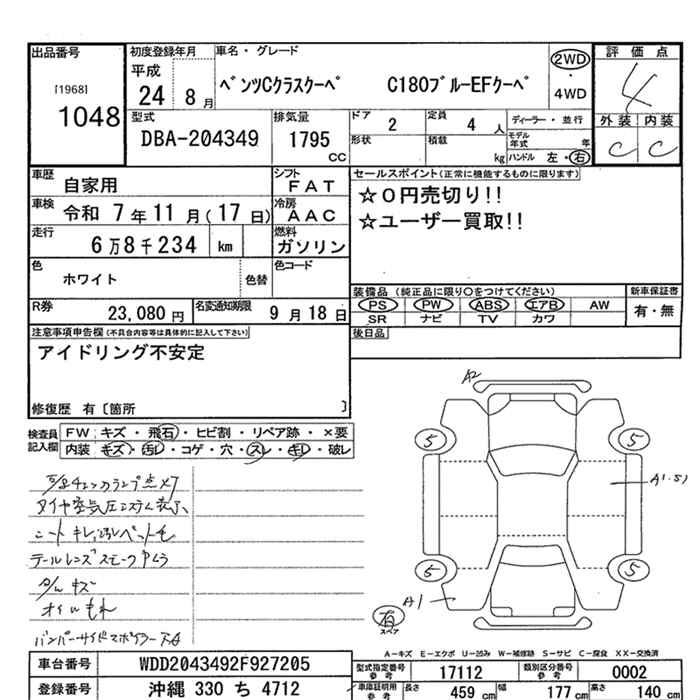 出品番号
[1968]
1048
初度登録年月
平成
24 8 月
車名・グレード
ベンツCクラスクーペ C180ブルーEFクーペ
2WD
・
4WD
評価点
4
外装 内装
C C
型式
DBA-204349
排気量
1795
CC
ドア
2
定員
4 人
形状
積載
kg
ディーラー・並行
モデル年式 年
ハンドル 左・右
車歴
自家用
シフト
FAT
車検
令和 7 年 11 月(17 日)
冷房
AAC
走行
6万8千234 km
燃料
ガソリン
色
ホワイト
色替
色コード
R券
23,080 円
名変通知期限
9 月 18 日
セールスポイント(正常に機能するものに限ります)
☆0円売切り!!
☆ユーザー買取!!
装備品 (純正品に限り○をつけてください)
PS PW ABS エアB AW
SR ナビ TV カワ
新車保証書
有・無
後日品
注意事項申告欄(不具合内容等は具体的に記入して下さい)
アイドリング不安定
修復歴 有〔箇所 〕
検査員記入欄
FW キズ・飛石・ヒビ割・リペア跡・×要
内装 キズ・汚レ・コゲ・穴・スレ・キレ・破レ
タイヤ空気圧システム表示
シート キレ
テールレンズスモーク
キズ
オイルもれ
A2
5
5
A1
5
5
A1
有
スペア
A-キズ E-エクボ U-凹み W-補修跡 S-サビ C-腐食 XX-交換済
車台番号
WDD2043492F927205
登録番号
沖縄 330 ち 4712
型式指定番号
参考
17112
類別区分番号
参考
0002
車庫証明用
参考
長さ 459 cm
幅 177 cm
高さ 140 cm